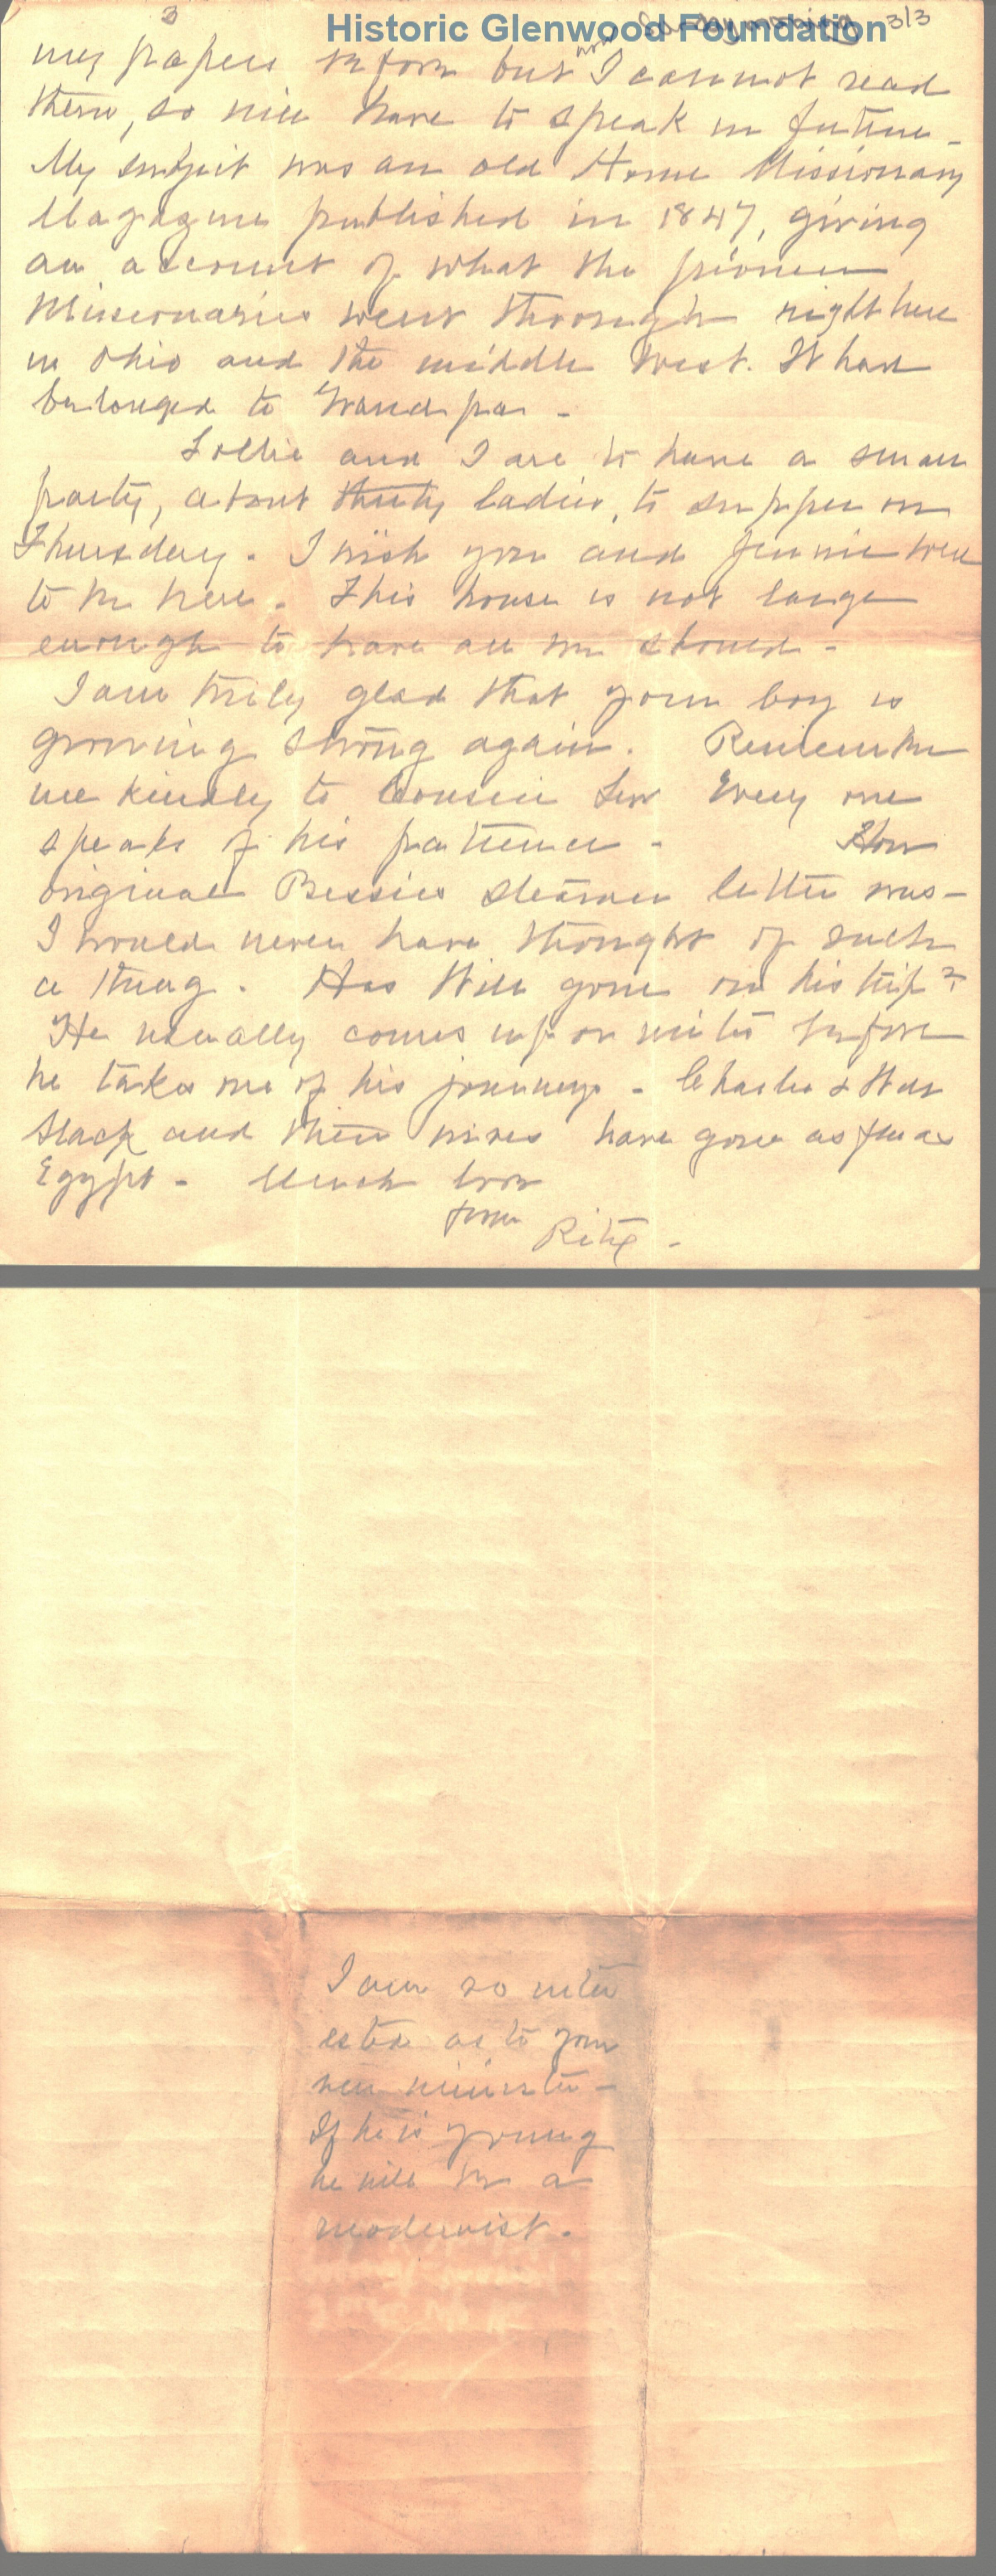 3
Historic Glenwood Foundation
Sunday morning 3/3
my papers before but now I cannot read
them, so will have to speak in future -
My subject was an old Home Missionary
Magazine published in 1847, giving
an account of what the pioneer
Missionaries went through right here
in Ohio and the middle West. It had
belonged to Grandpa -
Lollie and I are to have a small
party, about thirty ladies, to supper on
Thursday. I wish you and Jennie were
to be here. This house is not large
enough to have all we should -
I am truly glad that your boy is
growing strong again. Remember
me kindly to Cousin Lew Every one
speaks of his patience - How
original Bessies steamer letter was -
I would never have thought of such
a thing. Has Will gone on his trip?
He usually comes up or writes before
he takes one of his journeys - Charles & Will
Slack and their wives have gone as far as
Egypt - Much love
from Rita -
I am so inter
ested as to your
new minister -
If he is young
he will be a
modernist.